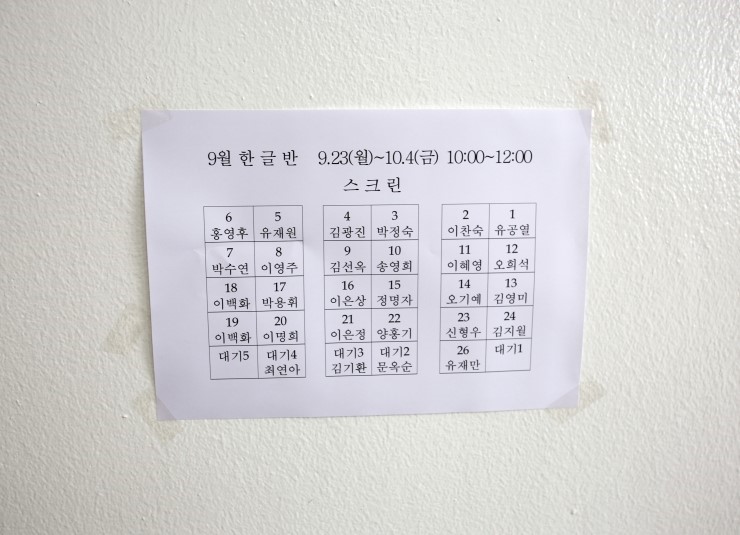 9월 한 글 반 9.23(월)~10.4(금) 10:00~12:00
스 크 린
6 5 4 3 2 1
홍영후 유재원 김광진 박정숙 이찬숙 유공열
7 8 9 10 11 12
박수연 이영주 김선옥 송영희 이혜영 오희석
18 17 16 15 14 13
이백화 박용휘 이은상 정명자 오기예 김영미
19 20 21 22 23 24
이백화 이명희 이은정 양홍기 신형우 김지월
대기5 대기4 대기3 대기2 26 대기1
최연아 김기환 문옥순 유재만